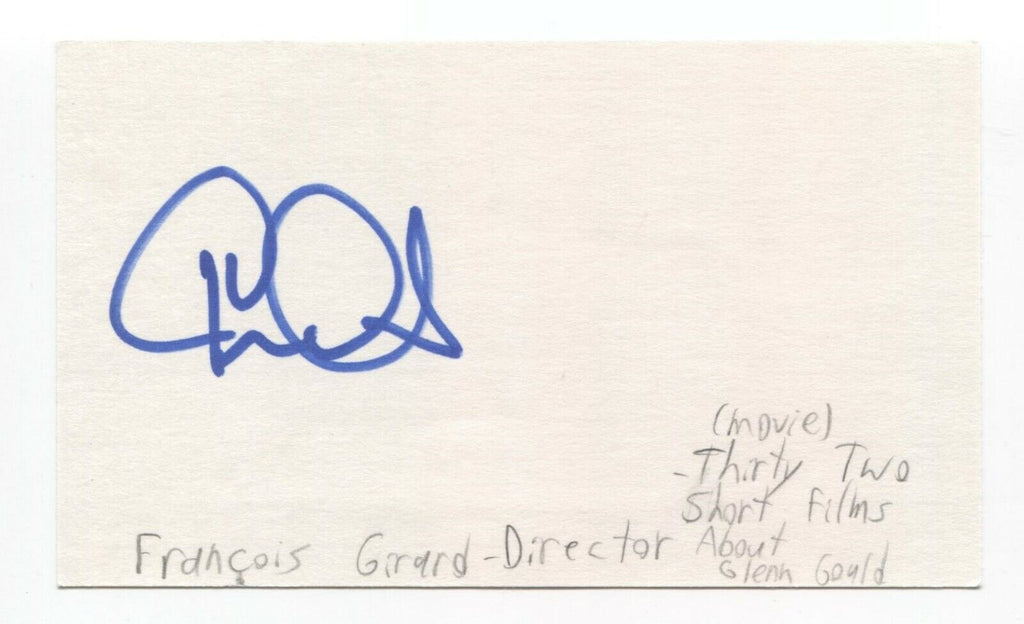 (movie)
-Thirty Two
Short Films
About
Glenn Gould
François Girard-Director